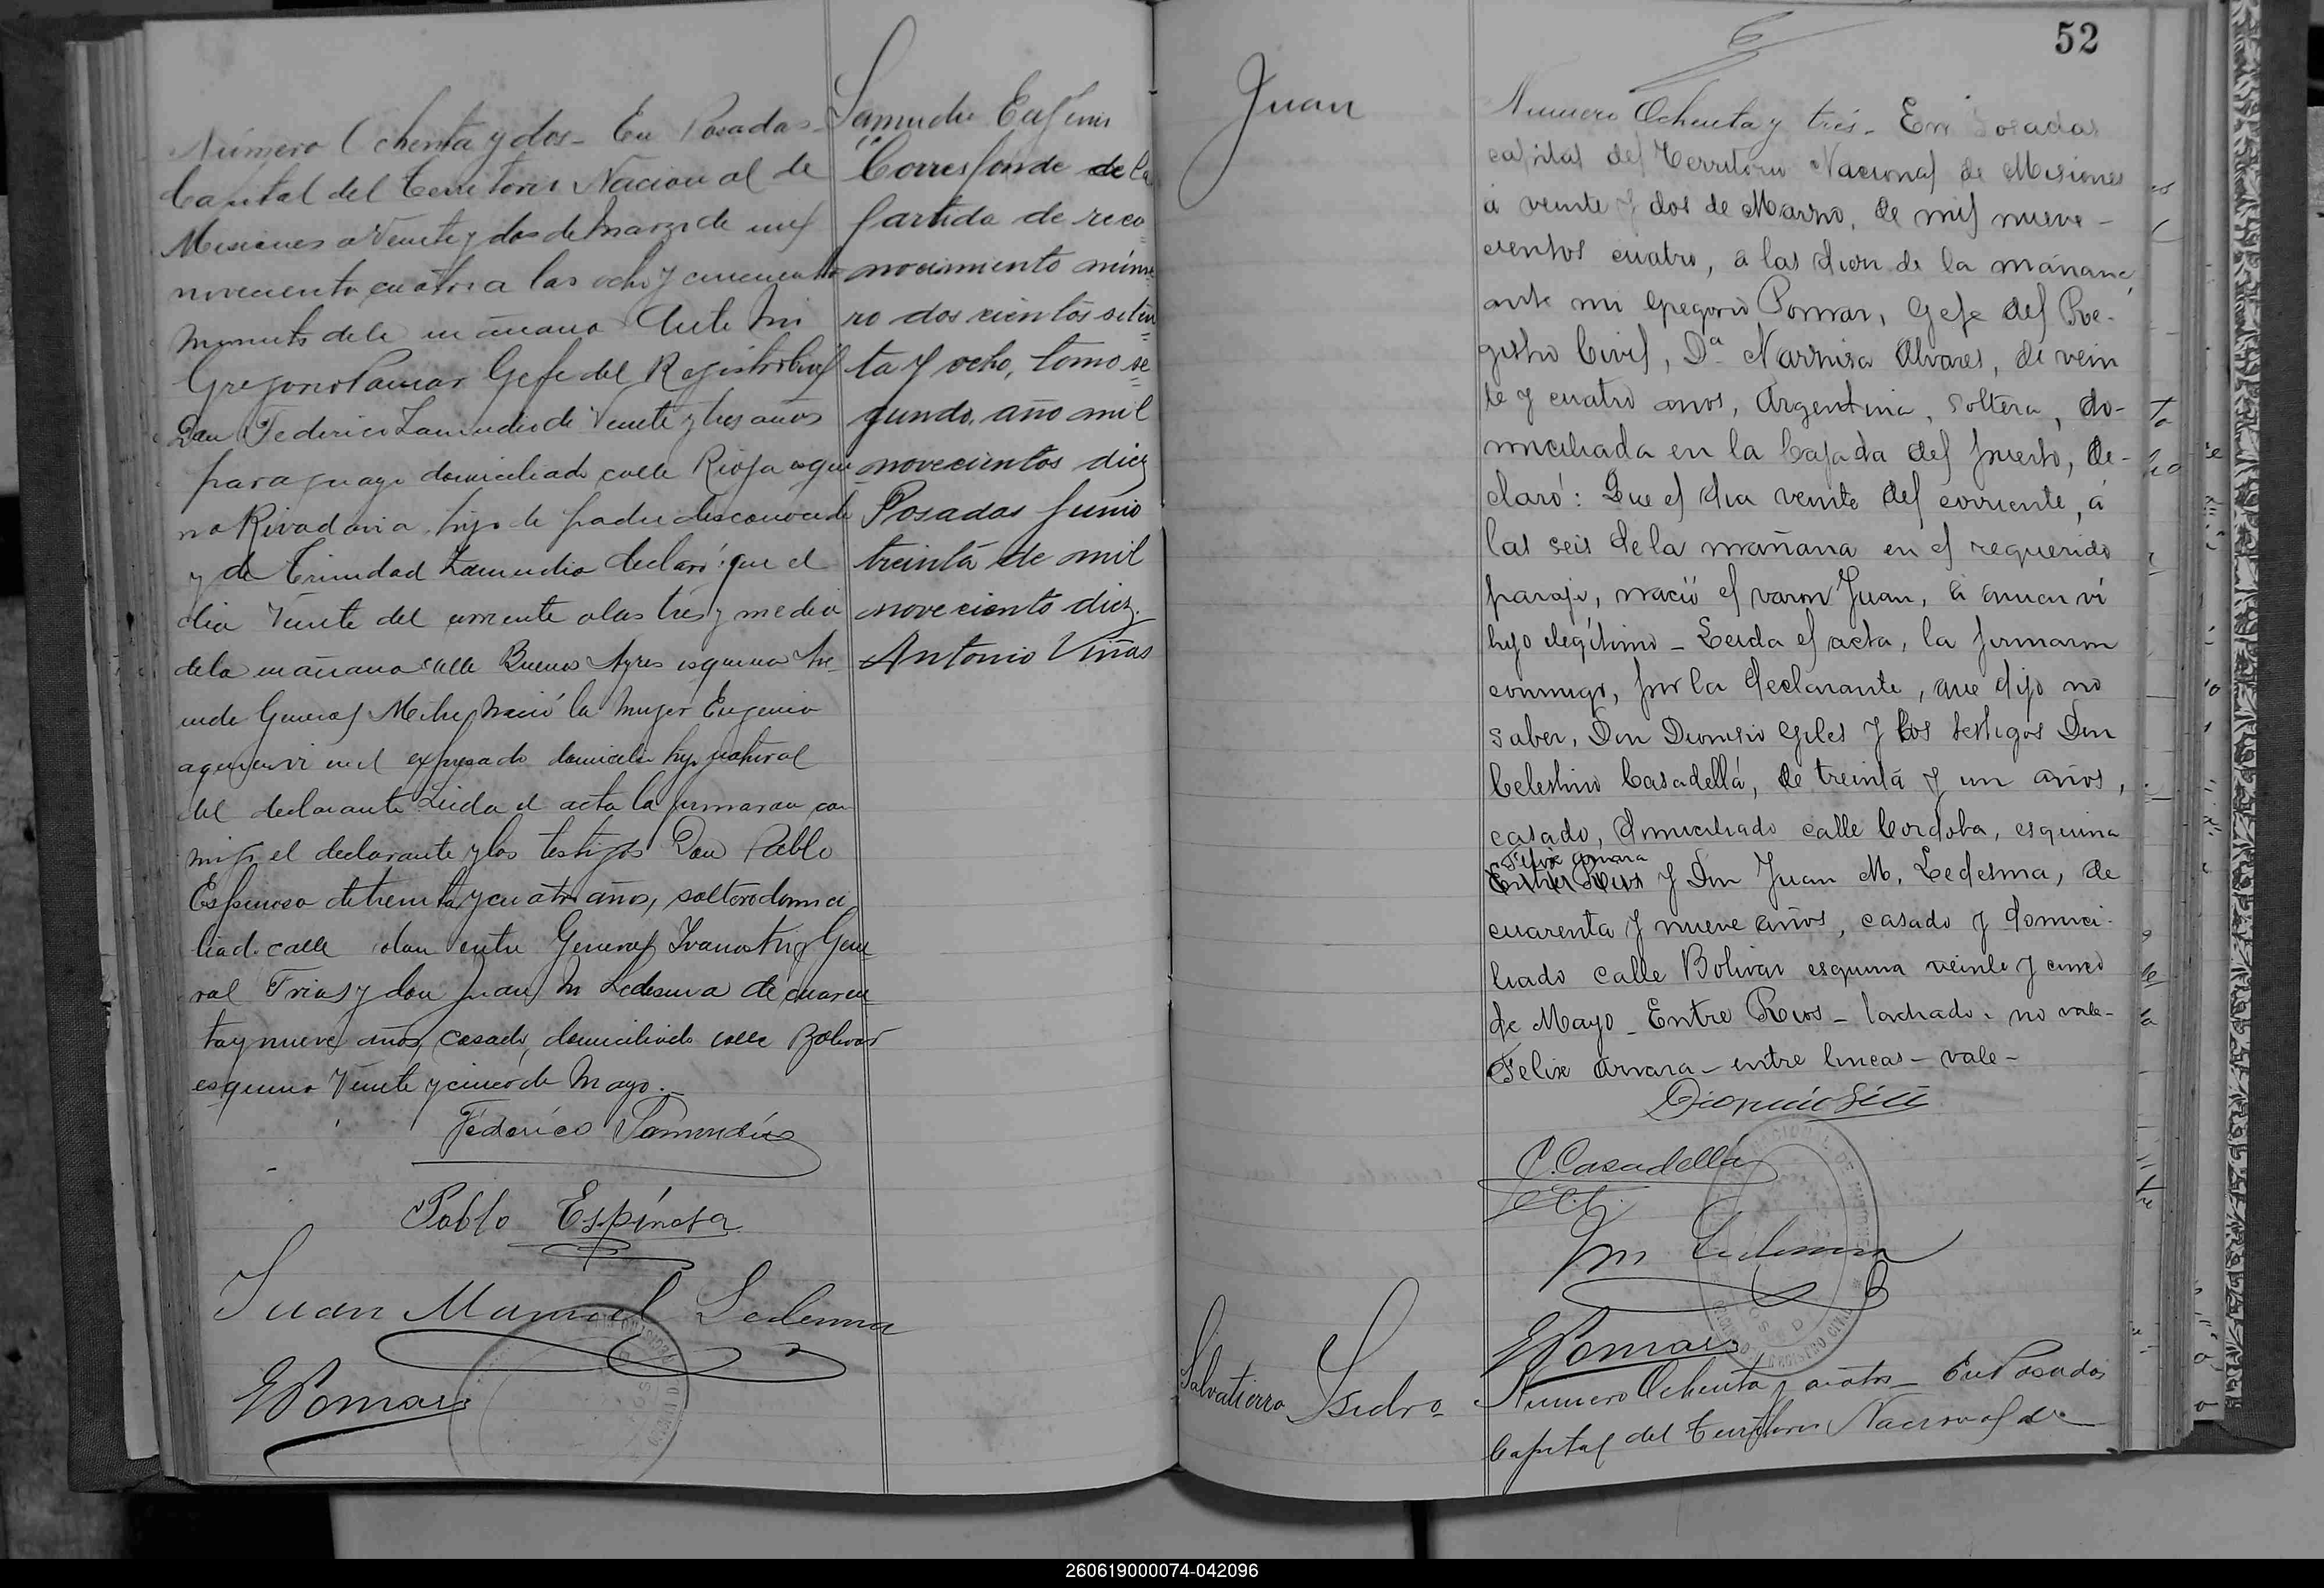 Número Ochenta y dos - En Posadas
Capital del Territorio Nacional de
Misiones a Veinte y dos de Marzo de mil
novecientos cuatro a las ocho y cincuenta
minutos de la mañana Ante Mi
Gregorio Pomar Gefe del Registro Civil
Don Federico Zamudio de Veinte y tres años
paraguayo domiciliado calle Rioja esqui
na Rivadavia hijo de padre desconocido
y de Trinidad Zamudio declaró: que el
dia Veinte del corriente a las tres y media
de la mañana calle Buenos Ayres esquina
General Mitre, Nació la mujer Eugenia
a quien vi en el expresado domicilio hija natural
del declarante Leida el acta la firmaron con
migo el declarante y los testigos Don Pablo
Espinosa de treinta y cuatro años, soltero domici
liado calle entre General y Gene
ral Frias y don Juan M Ledesma de cuaren
ta y nueve años, casado, domiciliado calle Bolivar
esquina Veinte y cinco de Mayo.
Federico Samudio
Pablo Espinosa
Juan Manuel Ledesma
GPomar
Samudio Eugenia
Corresponde de la
partida de reco
nocimiento núme
ro dos cientos seten
ta y ocho, tomo se
gundo, año mil
novecientos diez
Posadas Junio
treinta de mil
novecientos diez.
Antonio Viñas
52
Juan
Numero Ochenta y tres - En Posadas
capital del Territorio Nacional de Misiones
á veinte y dos de Marzo, de mil nueve-
cientos cuatro, á las diez de la mañana,
ante mi Gregorio Pomar, Gefe del Re-
gistro Civil, Dª Narcisa Alvares, de vein
te y cuatro años, Argentina, soltera, do-
miciliada en la bajada del puerto, de-
claró: Que el dia veinte del corriente, á
las seis de la mañana en el requerido
paraje, nació el varon Juan, á quien vi
hijo ilegítimo - Leida el acta, la firmaron
conmigo, por la declarante, que dijo no
saber, Don Dionisio Giles y los testigos Don
Celestino Casadellá, de treinta y un años,
casado, domiciliado calle Cordoba, esquina
Felix Amara
Entre Rios y Don Juan M. Ledesma, de
cuarenta y nueve años, casado y domici-
liado calle Bolivar esquina veinte y cinco
de Mayo - Entre Rios - tachado - no vale -
Felix Amara - entre lineas - vale -
C. Casadellá
Jm Ledesma
GPomar
Salvatierra Isidro
Numero Ochenta y cuatro - En Posadas
Capital del Territorio Nacional de
260619000074-042096